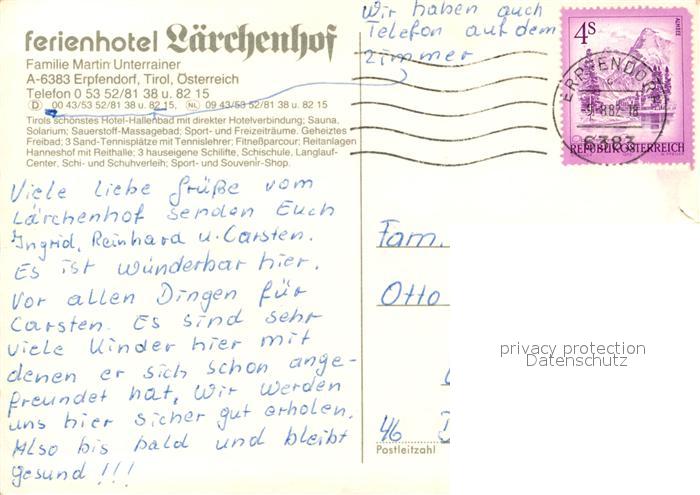 ferienhotel Lärchenhof
Familie Martin Unterrainer
A-6383 Erpfendorf, Tirol, Österreich
Telefon 0 53 52/81 38 u. 82 15
D 00 43/53 52/81 38 u. 82 15, NL 09 43/53 52/81 38 u. 82 15
Tirols schönstes Hotel-Hallenbad mit direkter Hotelverbindung; Sauna,
Solarium; Sauerstoff-Massagebad; Sport- und Freizeiträume. Geheiztes
Freibad; 3 Sand-Tennisplätze mit Tennislehrer; Fitneßparcour; Reitanlagen
Hanneshof mit Reithalle; 3 hauseigene Schilifte, Schischule, Langlauf-
Center, Schi- und Schuhverleih; Sport- und Souvenir-Shop.
Wir haben auch
Telefon auf dem
Zimmer
4S
ALMSEE
ERPFENDORF
6383
REPUBLIK ÖSTERREICH
Viele liebe Grüße vom
Lärchenhof senden Euch
Ingrid, Reinhard u. Carsten.
Es ist wunderbar hier.
Vor allen Dingen für
Carsten. Es sind sehr
viele Kinder hier mit
denen er sich schon ange-
freundet hat. Wir werden
uns hier sicher gut erholen.
Also bis bald und bleibt
gesund!!!
Fam.
Otto
46
Postleitzahl
privacy protection
Datenschutz